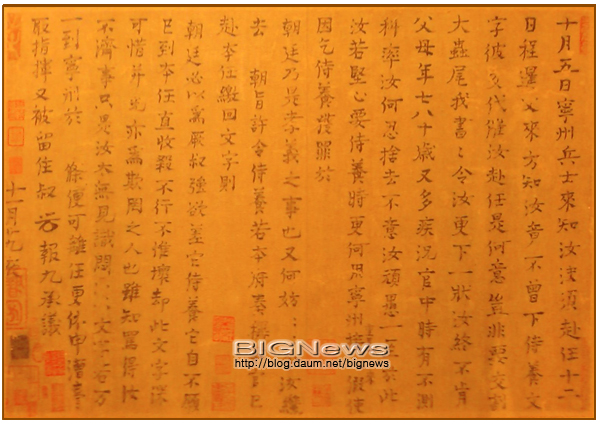 十月五日寧州兵士來知汝決須赴任十一
日程邏父來方知汝意不曾下侍養文
字彼交代催汝赴任是何意豈非要交割
大蟲尾我書々令汝更下一狀汝終不肯
父母年七八十歲又多疾況官中時有不測
科率汝何忍捨去不意汝頑愚一至於此
汝若堅心要侍養時更何用寧州 假使
因乞侍養獲罪於
朝廷乃是孝義之事也又何妨 汝
去 朝旨許令侍養若本府 已
赴本任繳回文字則
朝廷必以爲厭叔強欲差它侍養它自不願
已到本任直收殺不行不惟壞却此文字深
可惜并光亦爲欺罔之人也雖知罵得汝
不濟事只是汝太無見識悶々文字若方
一到寧州於 條便可離任更休申
取指揮又被留住叔 光報九承議
十一月九
BIGNews
http://blog.daum.net/bignews